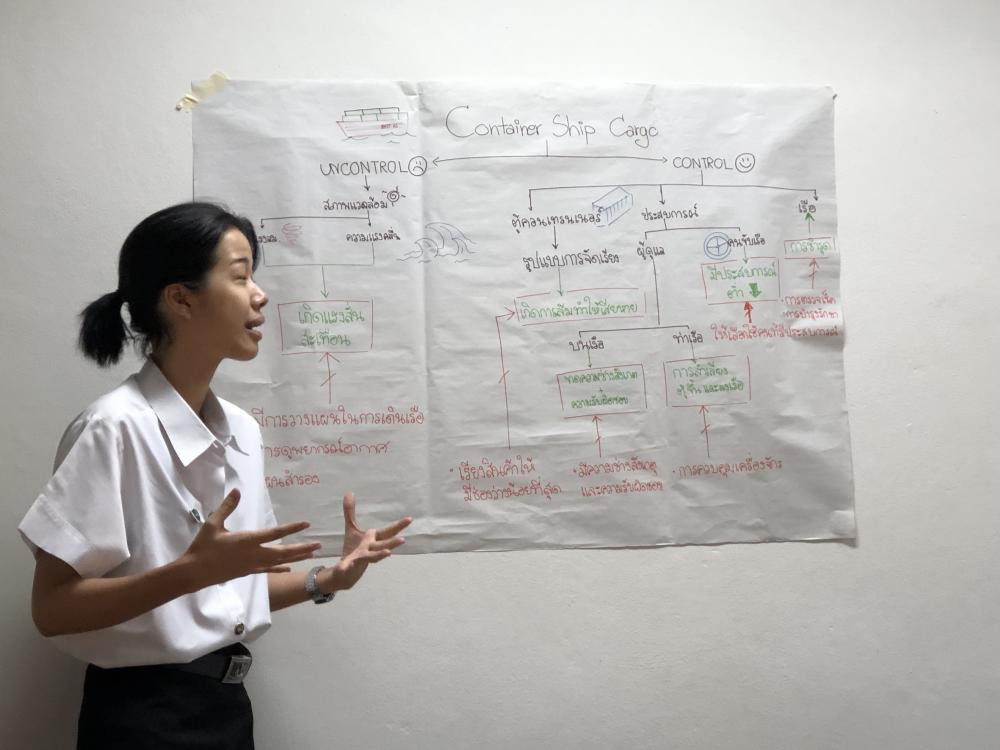 Container Ship Cargo
UNCONTROL
CONTROL
สภาพแวดล้อม
ความแรงคลื่น
เกิดแรงสั่น
สะเทือน
มีการวางแผนในการเดินเรือ
การดูพยากรณ์อากาศ
แผนสำรอง
ตู้คอนเทรนเนอร์
รูปแบบการจัดเรียง
เกิดการล้มทำให้เสียหาย
เรียงสินค้าให้
มีช่องว่างน้อยที่สุด
ประสบการณ์
ผู้ดูแล
บนเรือ
ขาดความช่างสังเกต
+
ความรับผิดชอบ
มีความช่างสังเกตุ
และความรับผิดชอบ
ท่าเรือ
การลำเลียง
ตู้ขึ้นและลงเรือ
การควบคุมเครื่องจักร
คนขับเรือ
มีประสบการณ์
ต่ำ
ให้เลือกใช้คนที่มีประสบการณ์
เรือ
การชำรุด
การตรวจเช็ค
การบำรุงรักษา